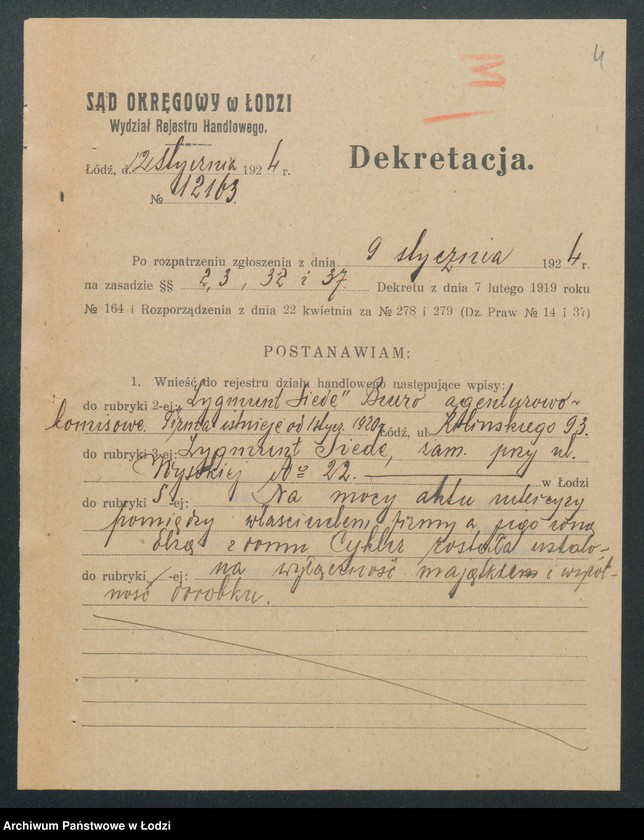 4
M
I
SĄD OKRĘGOWY w ŁODZI
Wydział Rejestru Handlowego.
Łódź, d. 12 stycznia 1924 r.
№ 12163.
Dekretacja.
Po rozpatrzeniu zgłoszenia z dnia 9 stycznia 1924 r.
na zasadzie §§ 2, 3, 32 i 37. Dekretu z dnia 7 lutego 1919 roku
№ 164 i Rozporządzenia z dnia 22 kwietnia za № 278 i 279 (Dz. Praw № 14 i 37)
POSTANAWIAM:
1. Wnieść do rejestru działu handlowego następujące wpisy:
do rubryki 2-ej: "Zygmunt Siede" Biuro agenturowo-
komisowe. Firma istnieje od 1 stycz. 1920 r. Łódź, ul. Kilińskiego 93.
do rubryki 3-ej: Zygmunt Siede, zam. przy ul.
Wysokiej № 22. w Łodzi
do rubryki 5-ej: Na mocy aktu intercyzy
pomiędzy właścicielem firmy a jego żoną
z domu została ustalo-
do rubryki -ej: na wyłączność majątkem i wspól-
ność dorobku.
Archiwum Państwowe w Łodzi